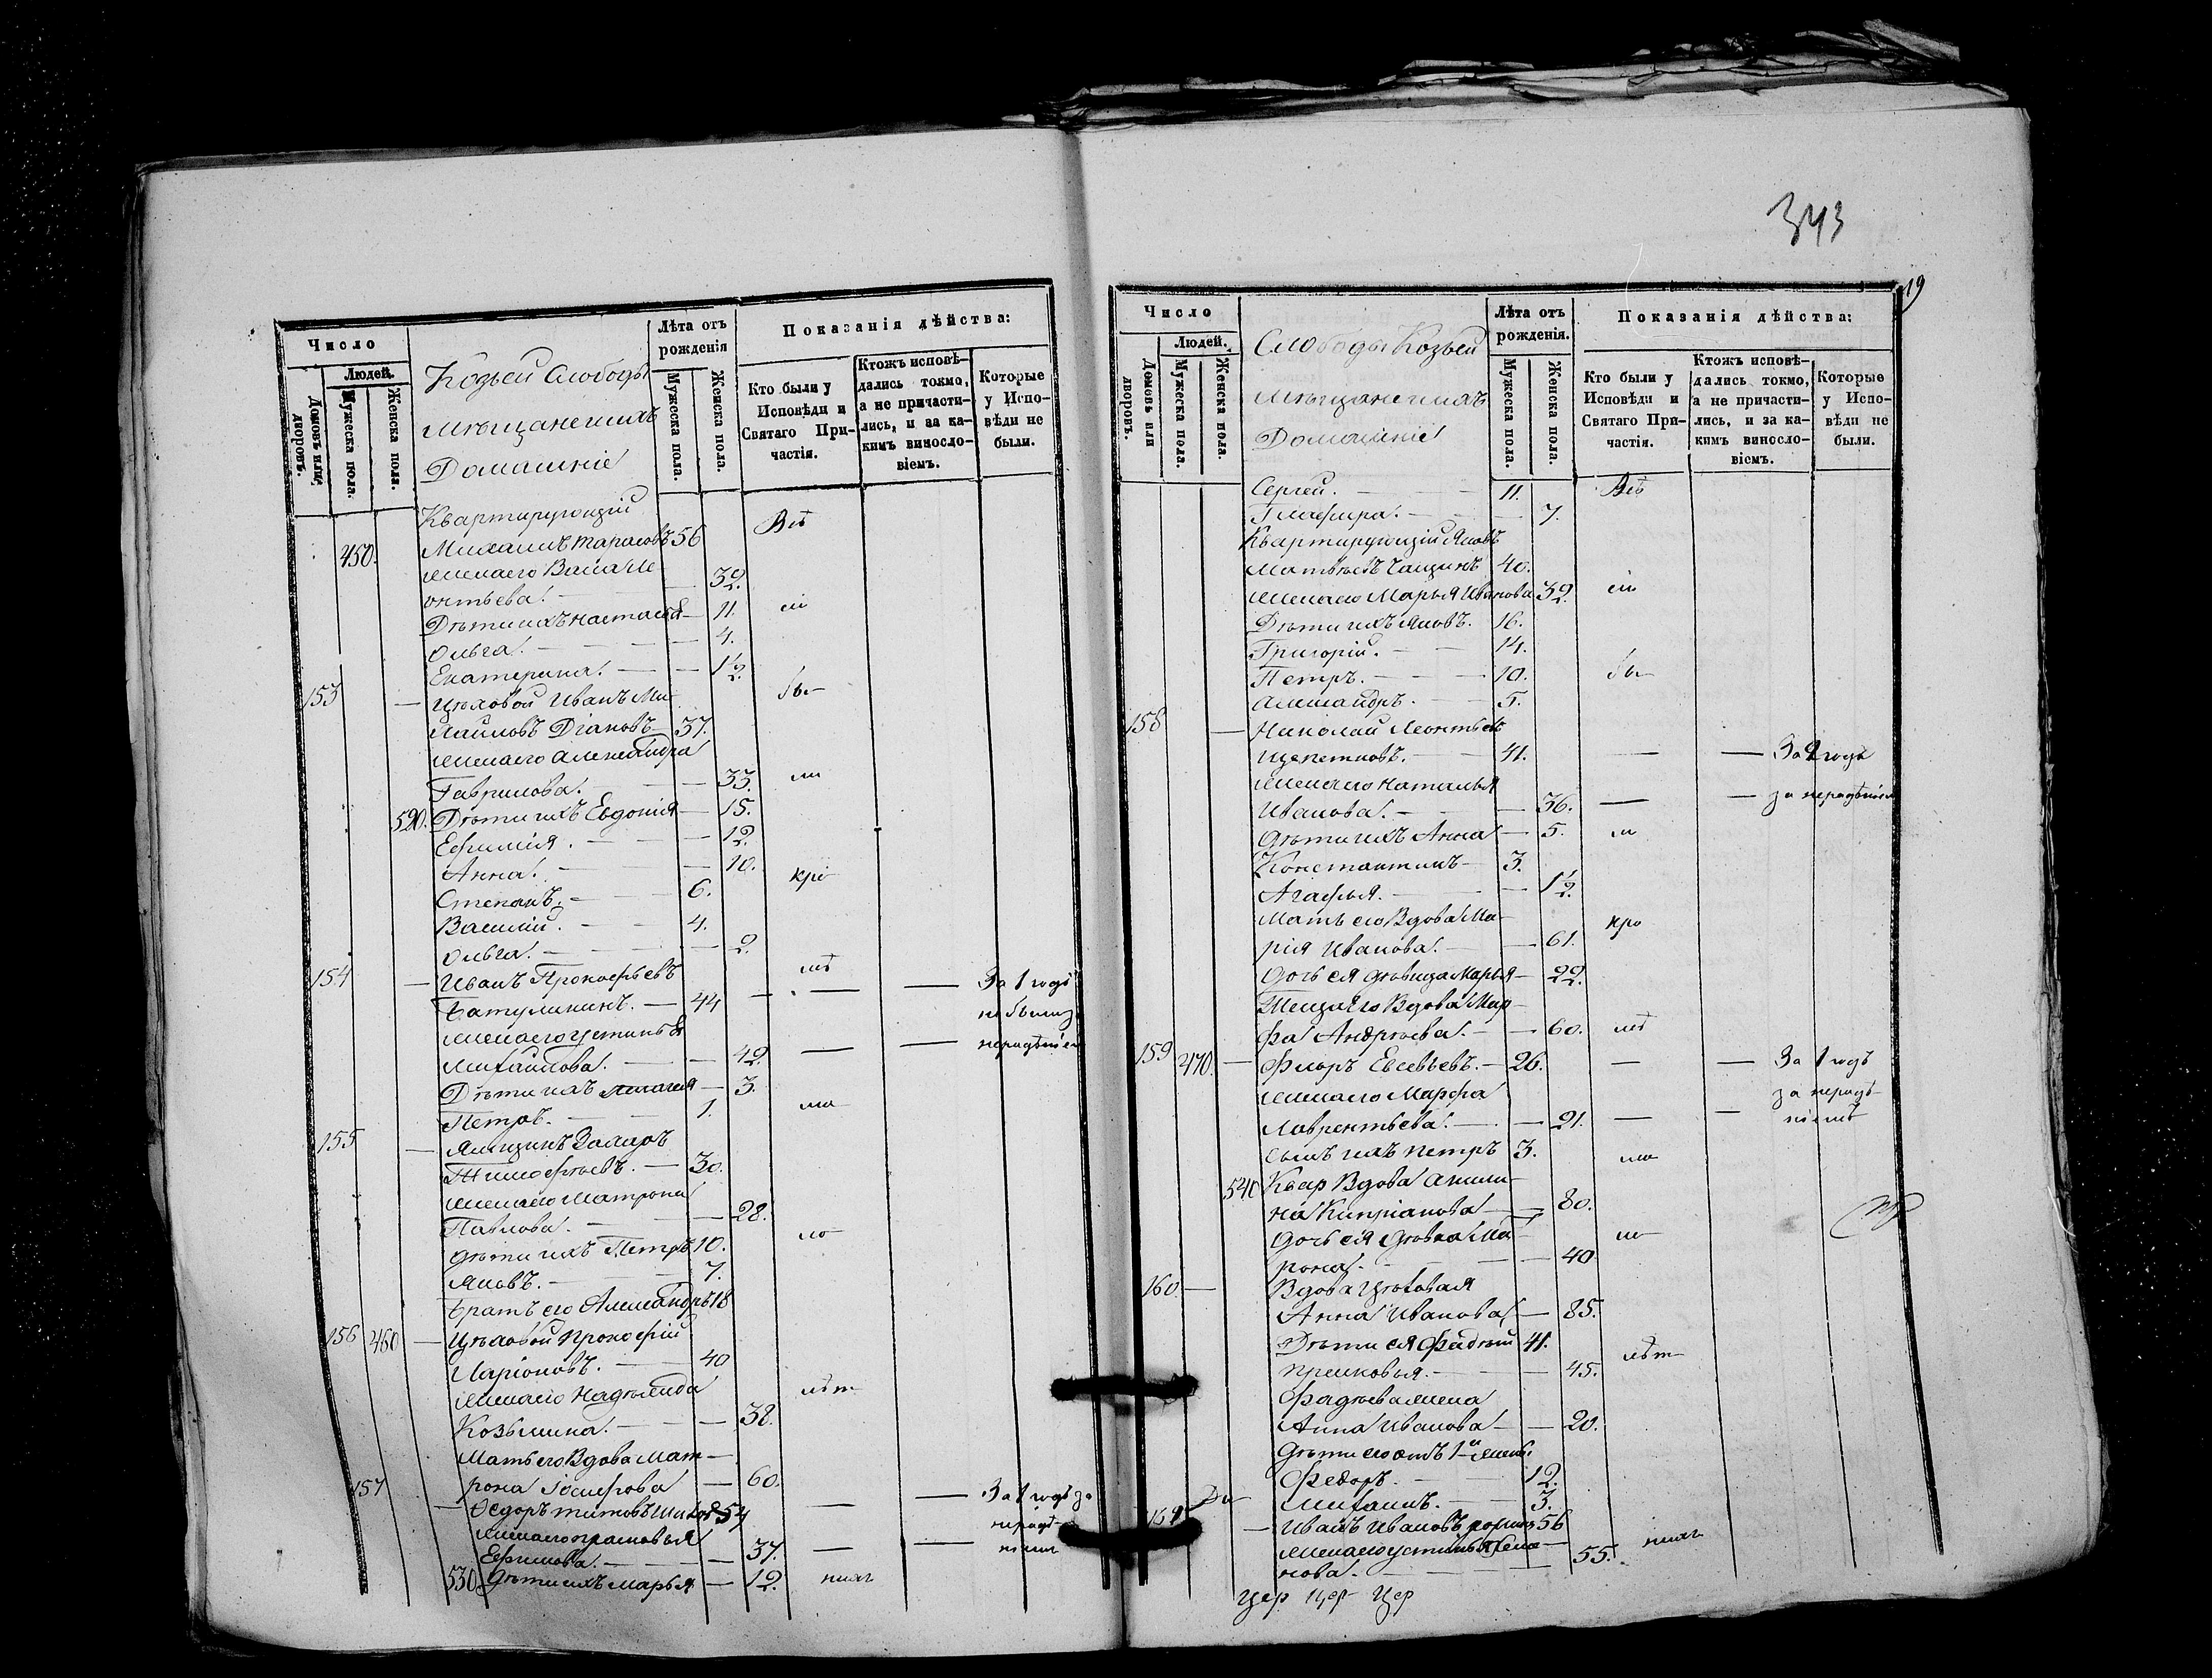 Число
Людей.
Домовъ или дворовъ.
Мужеска пола.
Женска пола.
Козьей Слободы
мещанѣ и ихъ
Домашніе
Лѣта отъ рожденія
Мужеска пола.
Женска пола.
Показанія дѣйства:
Кто были у Исповѣди и Святаго Причастія.
Ктожъ исповѣдались токмо, а не причастились, и за какимъ винословіемъ.
Которые у Исповѣди не были.
Квартирующій
450. Михаилъ Тарасовъ 56 Всѣ
жена его
онтьева. — 32.
Дѣти ихъ Настасья — 11. сіи
Ольга. — — 4.
Екатерина. — — 1½.
153 — Цѣховой Иванъ Ми- бы-
хайловъ Діановъ — 37.
жена его Александра
Гаврилова. — — 33. ли
520. Дѣти ихъ Евдокія — 15.
Ефимія. — — 12.
Анна. — — 10.
Степанъ. — 6. кро
Василій. — 4.
Ольга. — — 2.
154 — Иванъ Прокофьевъ мѣ За 1 годъ
Батулинъ. — 44 — — не были
жена его Устинья
Михайлова. — — 42. — — нерадѣніем
Дѣти ихъ Пелагея — 3.
Петръ. — 1. ма
155 — Захаръ
Тимофѣевъ. — 30.
жена его Матрона
Павлова. — — 28.
дѣти ихъ Петръ 10. ло
Яковъ. — 7.
братъ его Александръ 18
156 460 — Цѣховой Прокофій
Ларіоновъ. — 40
жена его Надѣжда лѣт-
Козьмина. — — 38.
Мать его Вдова Мат-
рона Іосифова — 60.
157 — Ѳедоръ Титовъ 54 — — За 1 годъ за
жена его Прасковья нерадѣ-
Ефимова. — — 37. — — ніем
530. Дѣти ихъ Марья — 12. нихъ
343
19
Число
Людей.
Домовъ или дворовъ.
Мужеска пола.
Женска пола.
Слободы Козьей
мѣщане и ихъ
Домашніе
Лѣта отъ рожденія.
Мужеска пола.
Женска пола.
Показанія дѣйства:
Кто были у Исповѣди и Святаго Причастія.
Ктожъ исповѣдались токмо, а не причастились, и за какимъ винословіемъ.
Которые у Исповѣди не были.
Сергей. — — 11. Всѣ
Глафира. — — 7.
Квартирующій Яковъ
Матвѣевъ 40.
жена его Марья Иванова 32. сіи
Дѣти ихъ Яковъ. 16.
Григорій. — 14.
Петръ. — 10. бы-
Александръ. — 5.
158 — Николай Леонтьевъ
Щепетновъ. — 41. — — За 2 года
жена его Наталья
Иванова. — — 36. — — за нерадѣніем
дѣти ихъ Анна — 5. ли
Константинъ — 3.
Агафья. — — 1½.
Мать его Вдова Ма- кро
рія Иванова. — — 61.
Дочь ея дѣвица Марья — 22.
Теща его Вдова Мар-
фа Андрѣева. — — 60. мѣ
159 470. — Флоръ Евсевьевъ. — 26. — — За 1 годъ
жена его Марфа за нерадѣ-
Лаврентьева. — — 21. — — ніемъ
сынъ ихъ Петръ 3. ма
540 Квар Вдова Акили-
на Кипріанова — 80.
Дочь ея дѣвка Ма- ло
рона. — — 40
160. — Вдова Цѣховая
Анна Иванова — 85.
Дѣти ея Фадѣй 41.
Прасковья. — — 45. лѣт-
Фадѣева жена
Анна Иванова — 20.
Дѣти его отъ 1й жены
Федоръ. — 12.
Михаилъ. — 3.
— Иванъ Ивановъ 56
жена его Устинья нихъ
нова. — — 55.
Цер Цер Цер